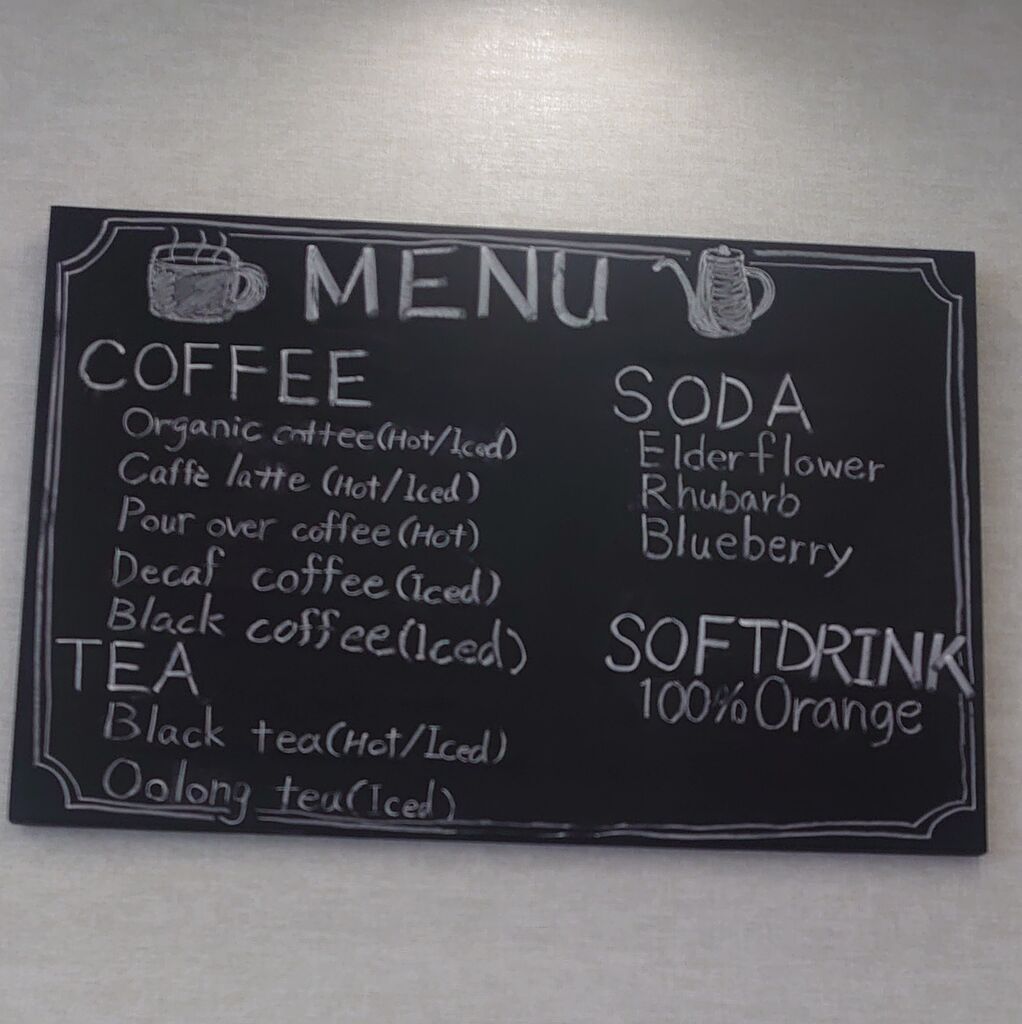 MENU
COFFEE
Organic coffee(Hot/Iced)
Caffè latte (Hot/Iced)
Pour over coffee(Hot)
Decaf coffee(Iced)
Black coffee(Iced)
TEA
Black tea(Hot/Iced)
Oolong tea(Iced)
SODA
Elderflower
Rhubarb
Blueberry
SOFTDRINK
100%Orange